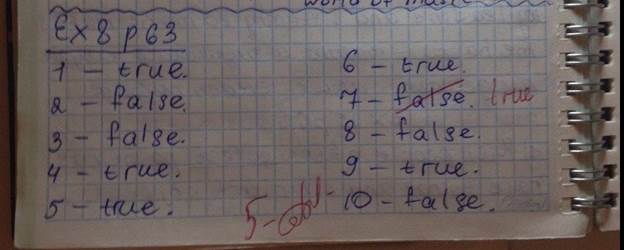 world of music
Ex 8 p 63
1 - true.
2 - false.
3 - false.
4 - true.
5 - true.
6 - true.
7 - false. true
8 - false.
9 - true.
10 - false.
5-